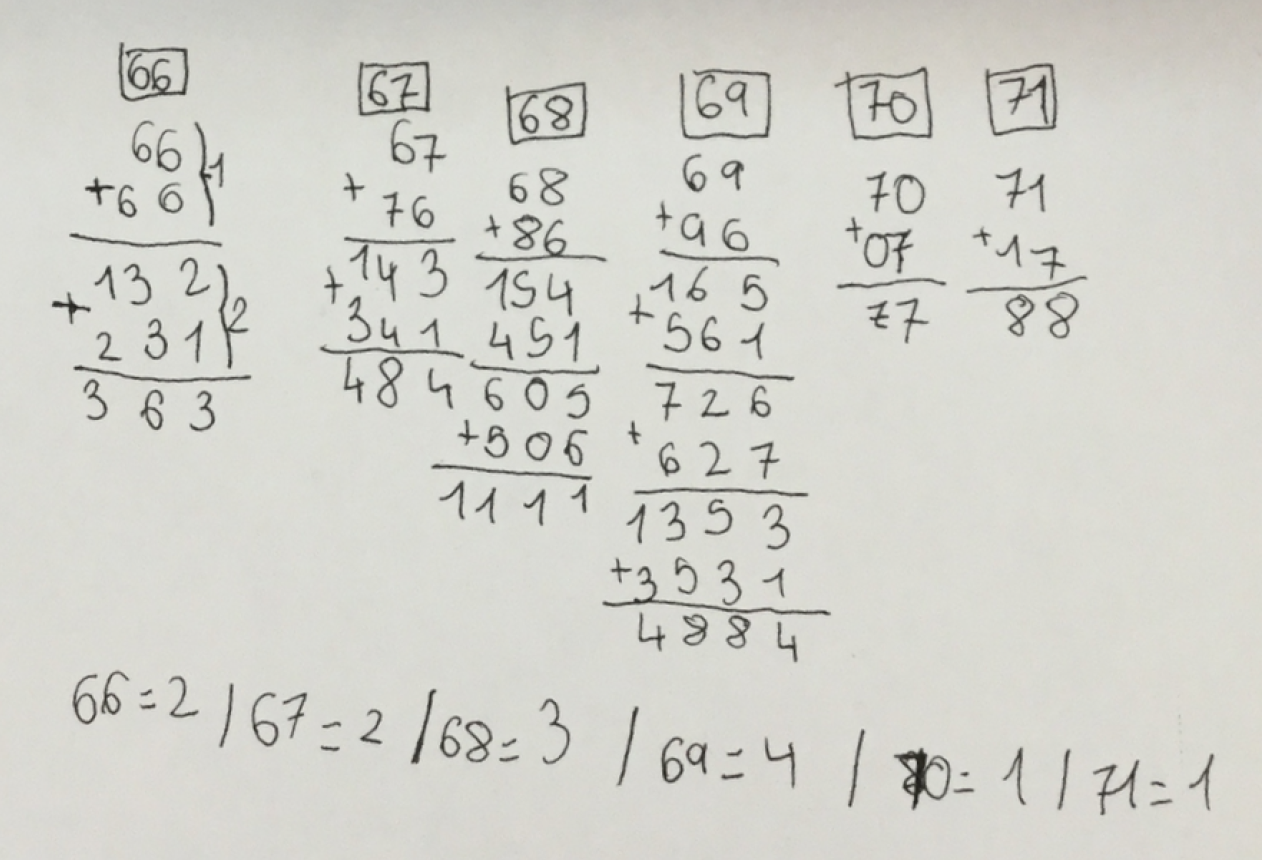 66
66
+66 } 1
132
+231 } 2
363
67
67
+76
143
+341
484
68
68
+86
154
451
605
+506
1111
69
69
+96
165
+561
726
+627
1353
+3531
4884
70
70
+07
77
71
71
+17
88
66=2 / 67=2 / 68=3 / 69=4 / 70=1 / 71=1